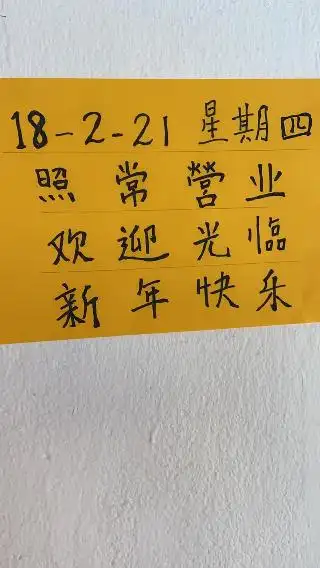 18-2-21 星期四
照常營业
欢迎光临
新年快乐